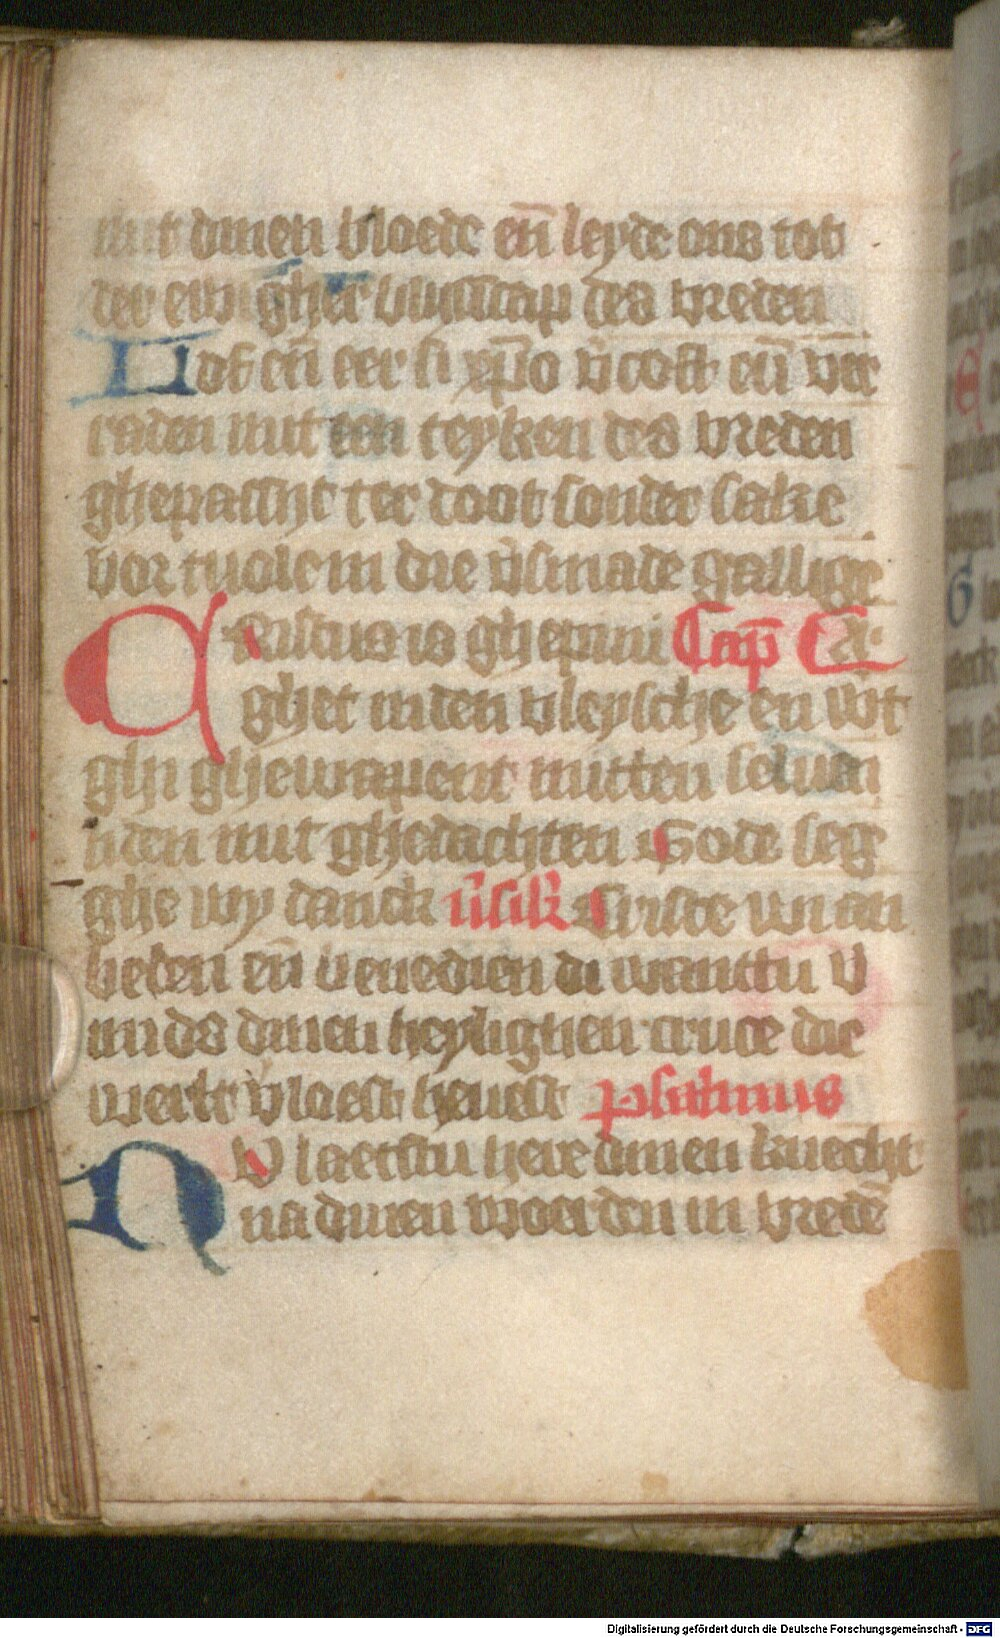 mit dinen bloede en̄ leyde ons tot
der ewigher blijscap des vreden
Lof en̄ eer si xp̄o v̄coft en̄ ver
raden mit een teyken des vreden
ghepassijt ter doot sonder sake
vor tuolc in die v̄smade gallige
Cristus is ghepini Cap̄
ghet inden vleysche en wt
ghi ghewapent mitten seluen
inden mit ghedachten Gode seg
ghe wy danck v̄sik̄ Criste wi an
beden en̄ benedien di wanttu v
mids dinen heylighen cruce die
werlt v̄loest heuest psalmus
Nv laetstu here dinen knecht
na dinen woerden in vredē
Digitalisierung gefördert durch die Deutsche Forschungsgemeinschaft - DFG